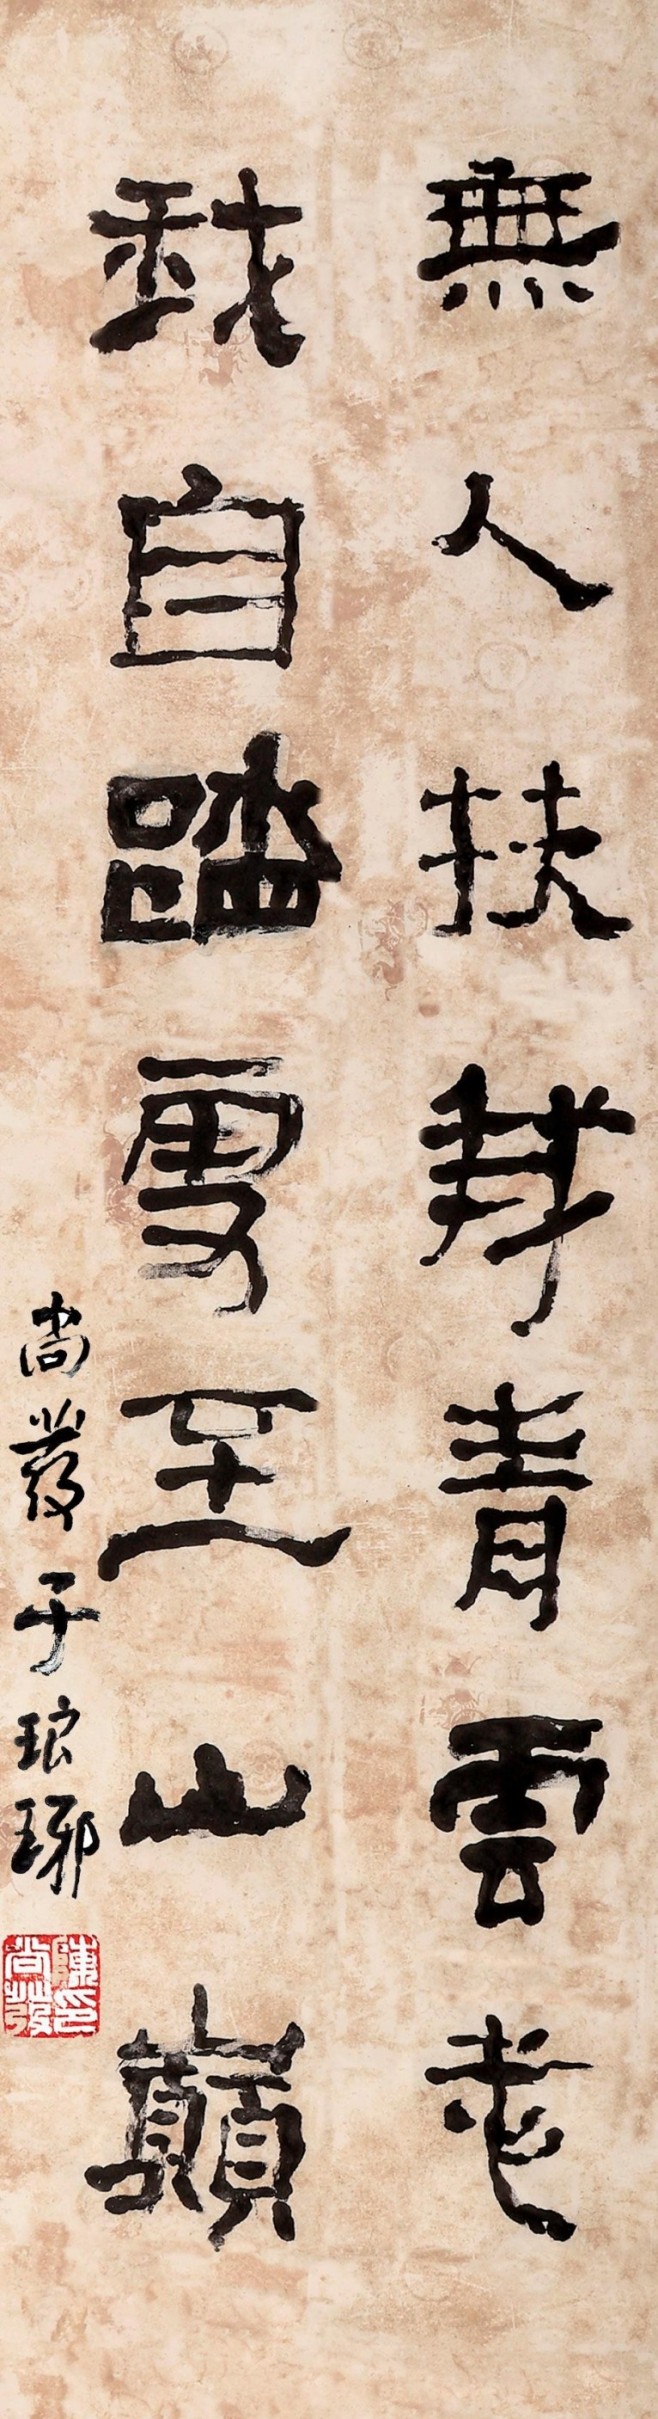 無人扶我青雲志
我自踏雪至山巔
尚發于琅琊
陳印尚發